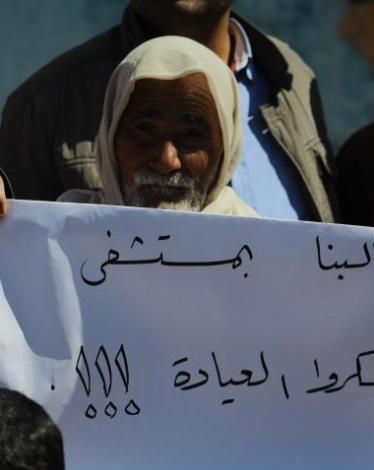 لبنا بمستشفى
سكروا العيادة !!!